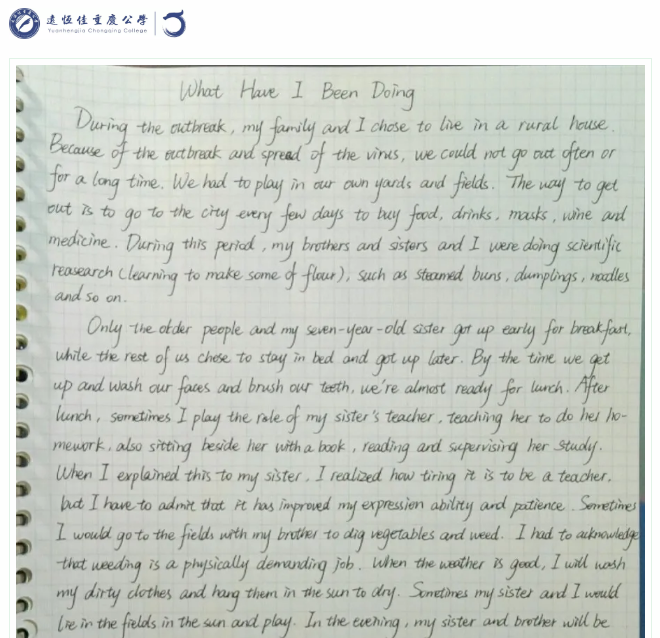 遠恆佳重慶公學
Yuanhengjia Chongqing College
What Have I Been Doing
During the outbreak, my family and I chose to live in a rural house.
Because of the outbreak and spread of the virus, we could not go out often or
for a long time. We had to play in our own yards and fields. The way to get
out is to go to the city every few days to buy food, drinks, masks, wine and
medicine. During this period, my brothers and sisters and I were doing scientific
reasearch (learning to make some of flour), such as steamed buns, dumplings, noodles
and so on.
Only the older people and my seven-year-old sister got up early for breakfast,
while the rest of us chose to stay in bed and got up later. By the time we get
up and wash our faces and brush our teeth, we're almost ready for lunch. After
lunch, sometimes I play the role of my sister's teacher, teaching her to do her ho-
mework, also sitting beside her with a book, reading and supervising her study.
When I explained this to my sister, I realized how tiring it is to be a teacher,
but I have to admit that it has improved my expression ability and patience. Sometimes
I would go to the fields with my brother to dig vegetables and weed. I had to acknowledge
that weeding is a physically demanding job. When the weather is good, I will wash
my dirty clothes and hang them in the sun to dry. Sometimes my sister and I would
lie in the fields in the sun and play. In the evening, my sister and brother will be